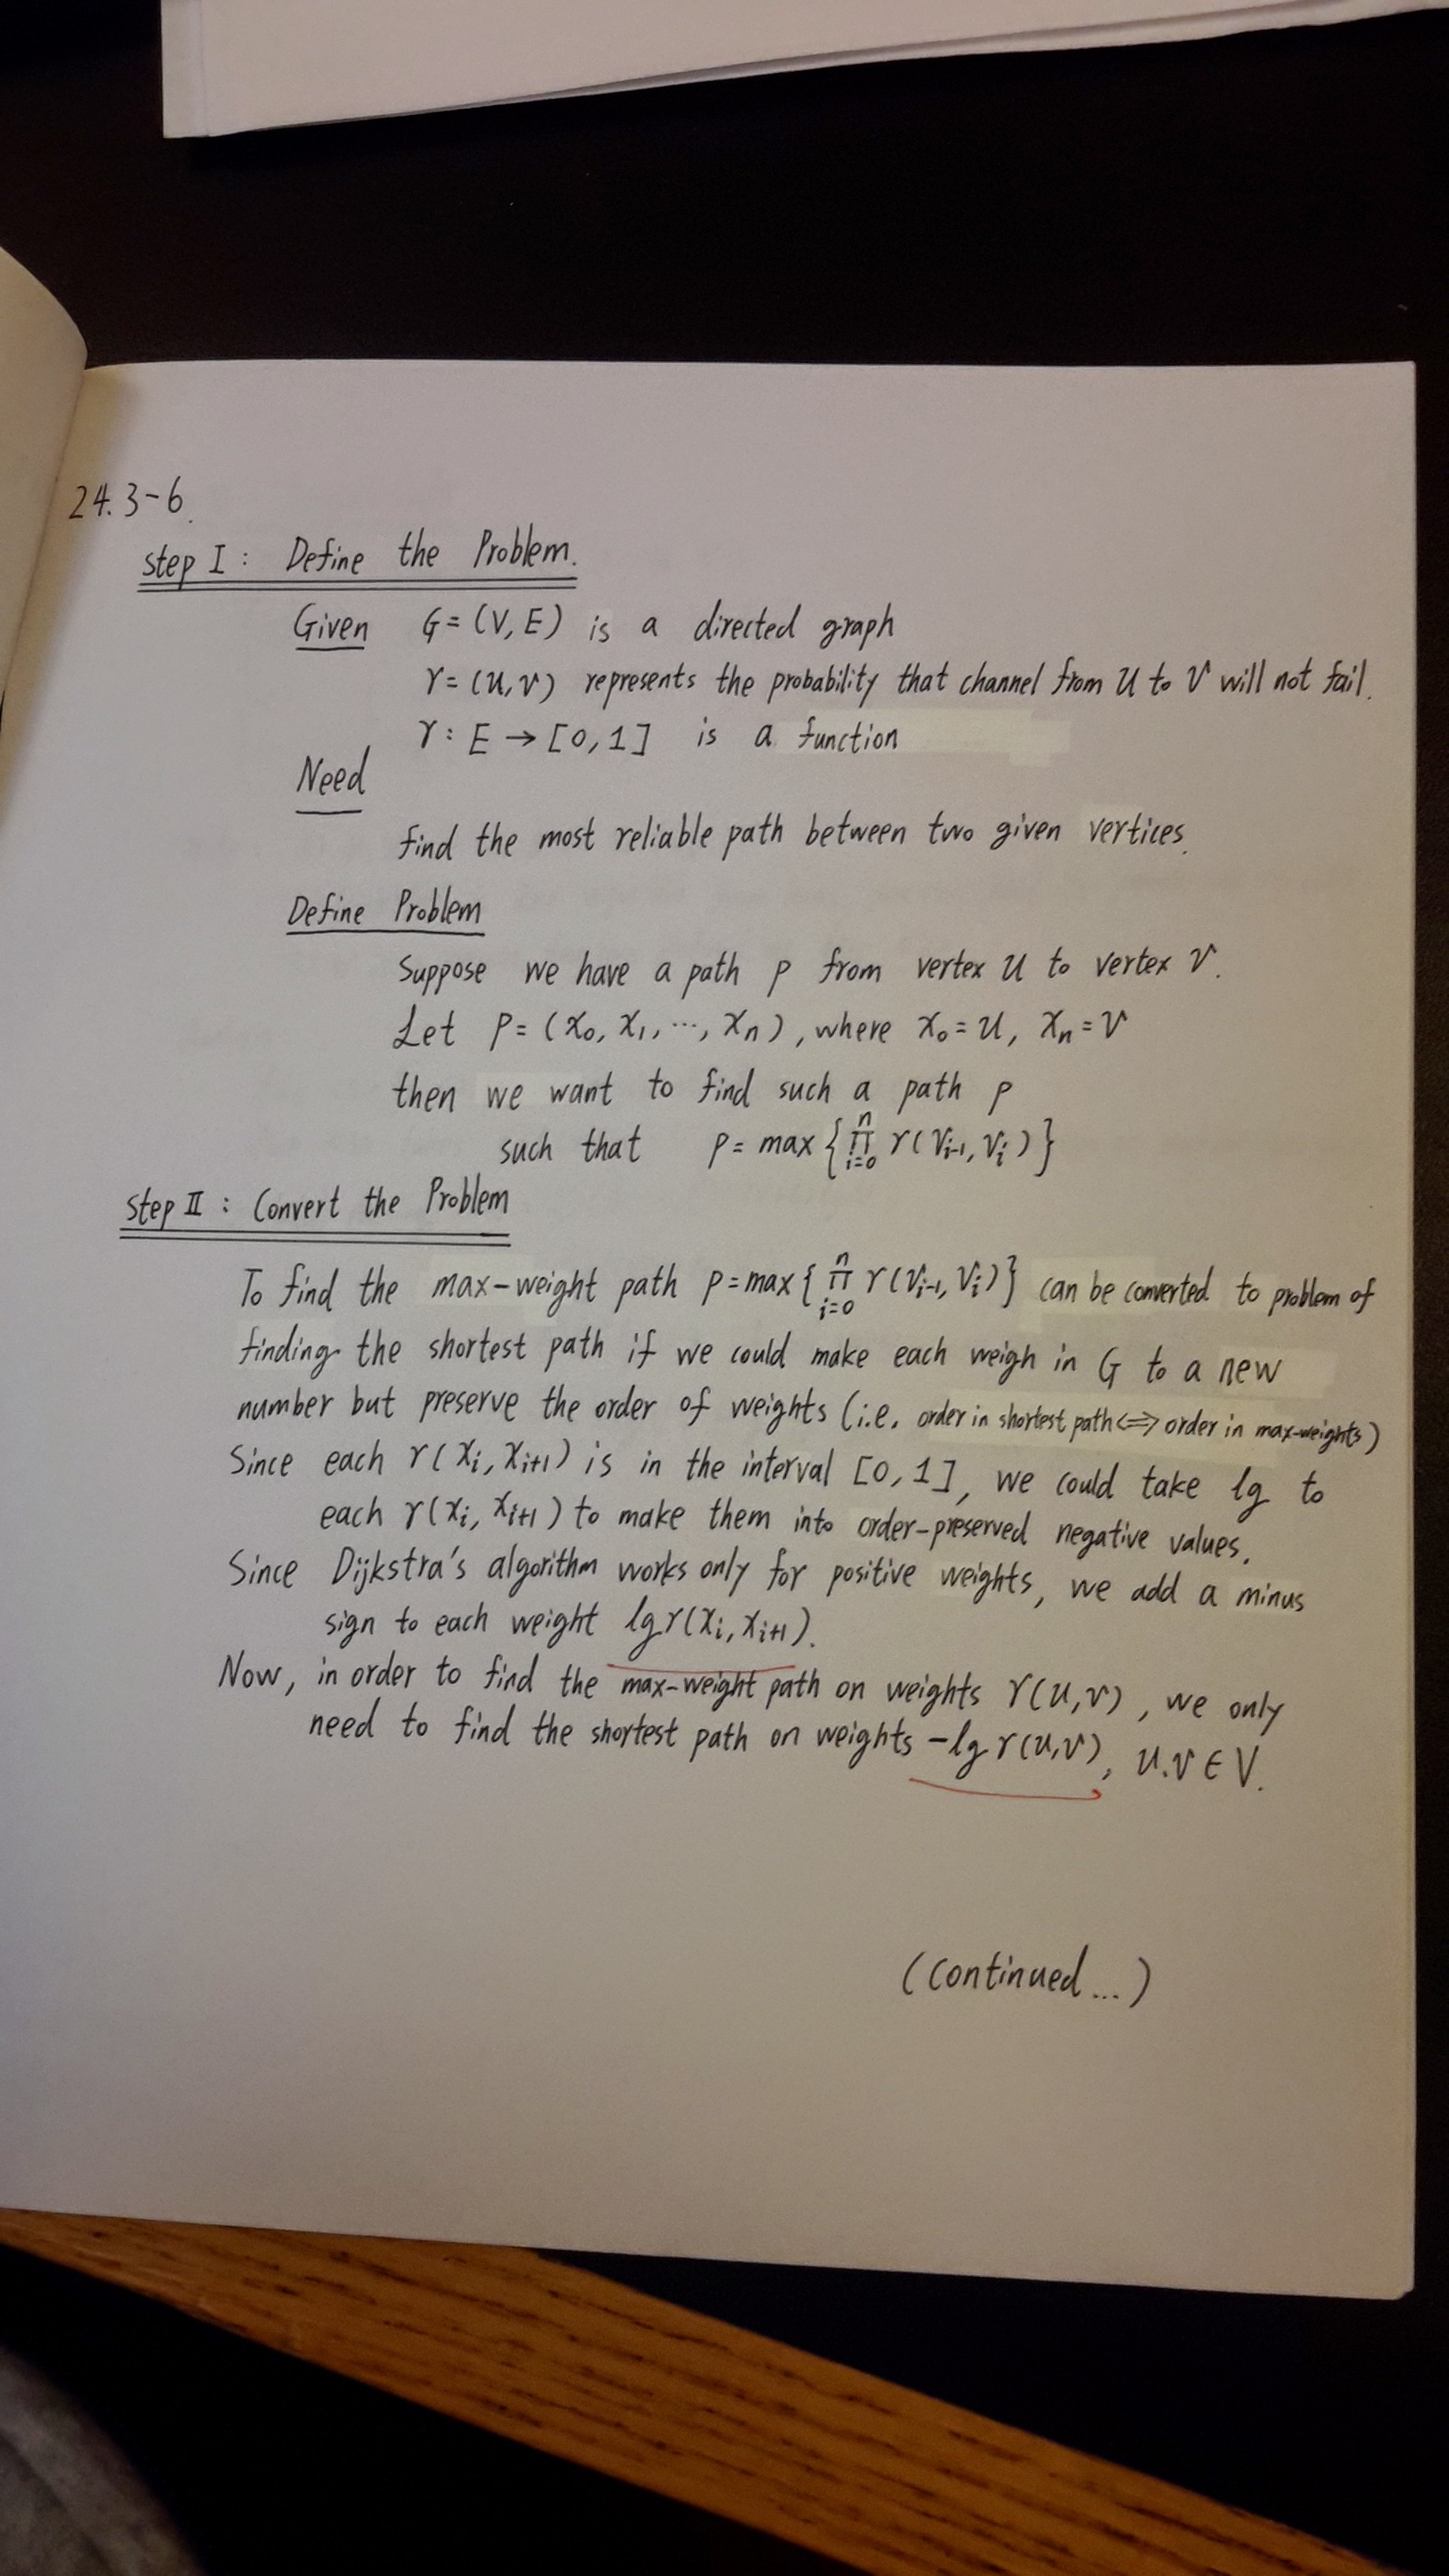 24.3-6.
Step I : Define the Problem.
Given G = (V, E) is a directed graph
r = (u, v) represents the probability that channel from u to v will not fail.
r : E → [0, 1] is a function
Need
find the most reliable path between two given vertices.
Define Problem
Suppose we have a path p from vertex u to vertex v.
Let p = (x₀, x₁, ..., xₙ), where x₀ = u, xₙ = v
then we want to find such a path p
such that p = max { ∏ⁿᵢ₌₀ r(vᵢ₋₁, vᵢ) }
Step II : Convert the Problem
To find the max-weight path p = max { ∏ⁿᵢ₌₀ r(vᵢ₋₁, vᵢ) } can be converted to problem of
finding the shortest path if we could make each weigh in G to a new
number but preserve the order of weights (i.e. order in shortest path <=> order in max-weights)
Since each r(xᵢ, xᵢ₊₁) is in the interval [0, 1], we could take lg to
each r(xᵢ, xᵢ₊₁) to make them into order-preserved negative values.
Since Dijkstra's algorithm works only for positive weights, we add a minus
sign to each weight lg r(xᵢ, xᵢ₊₁).
Now, in order to find the max-weight path on weights r(u, v), we only
need to find the shortest path on weights -lg r(u, v), u.v ∈ V.
(continued...)